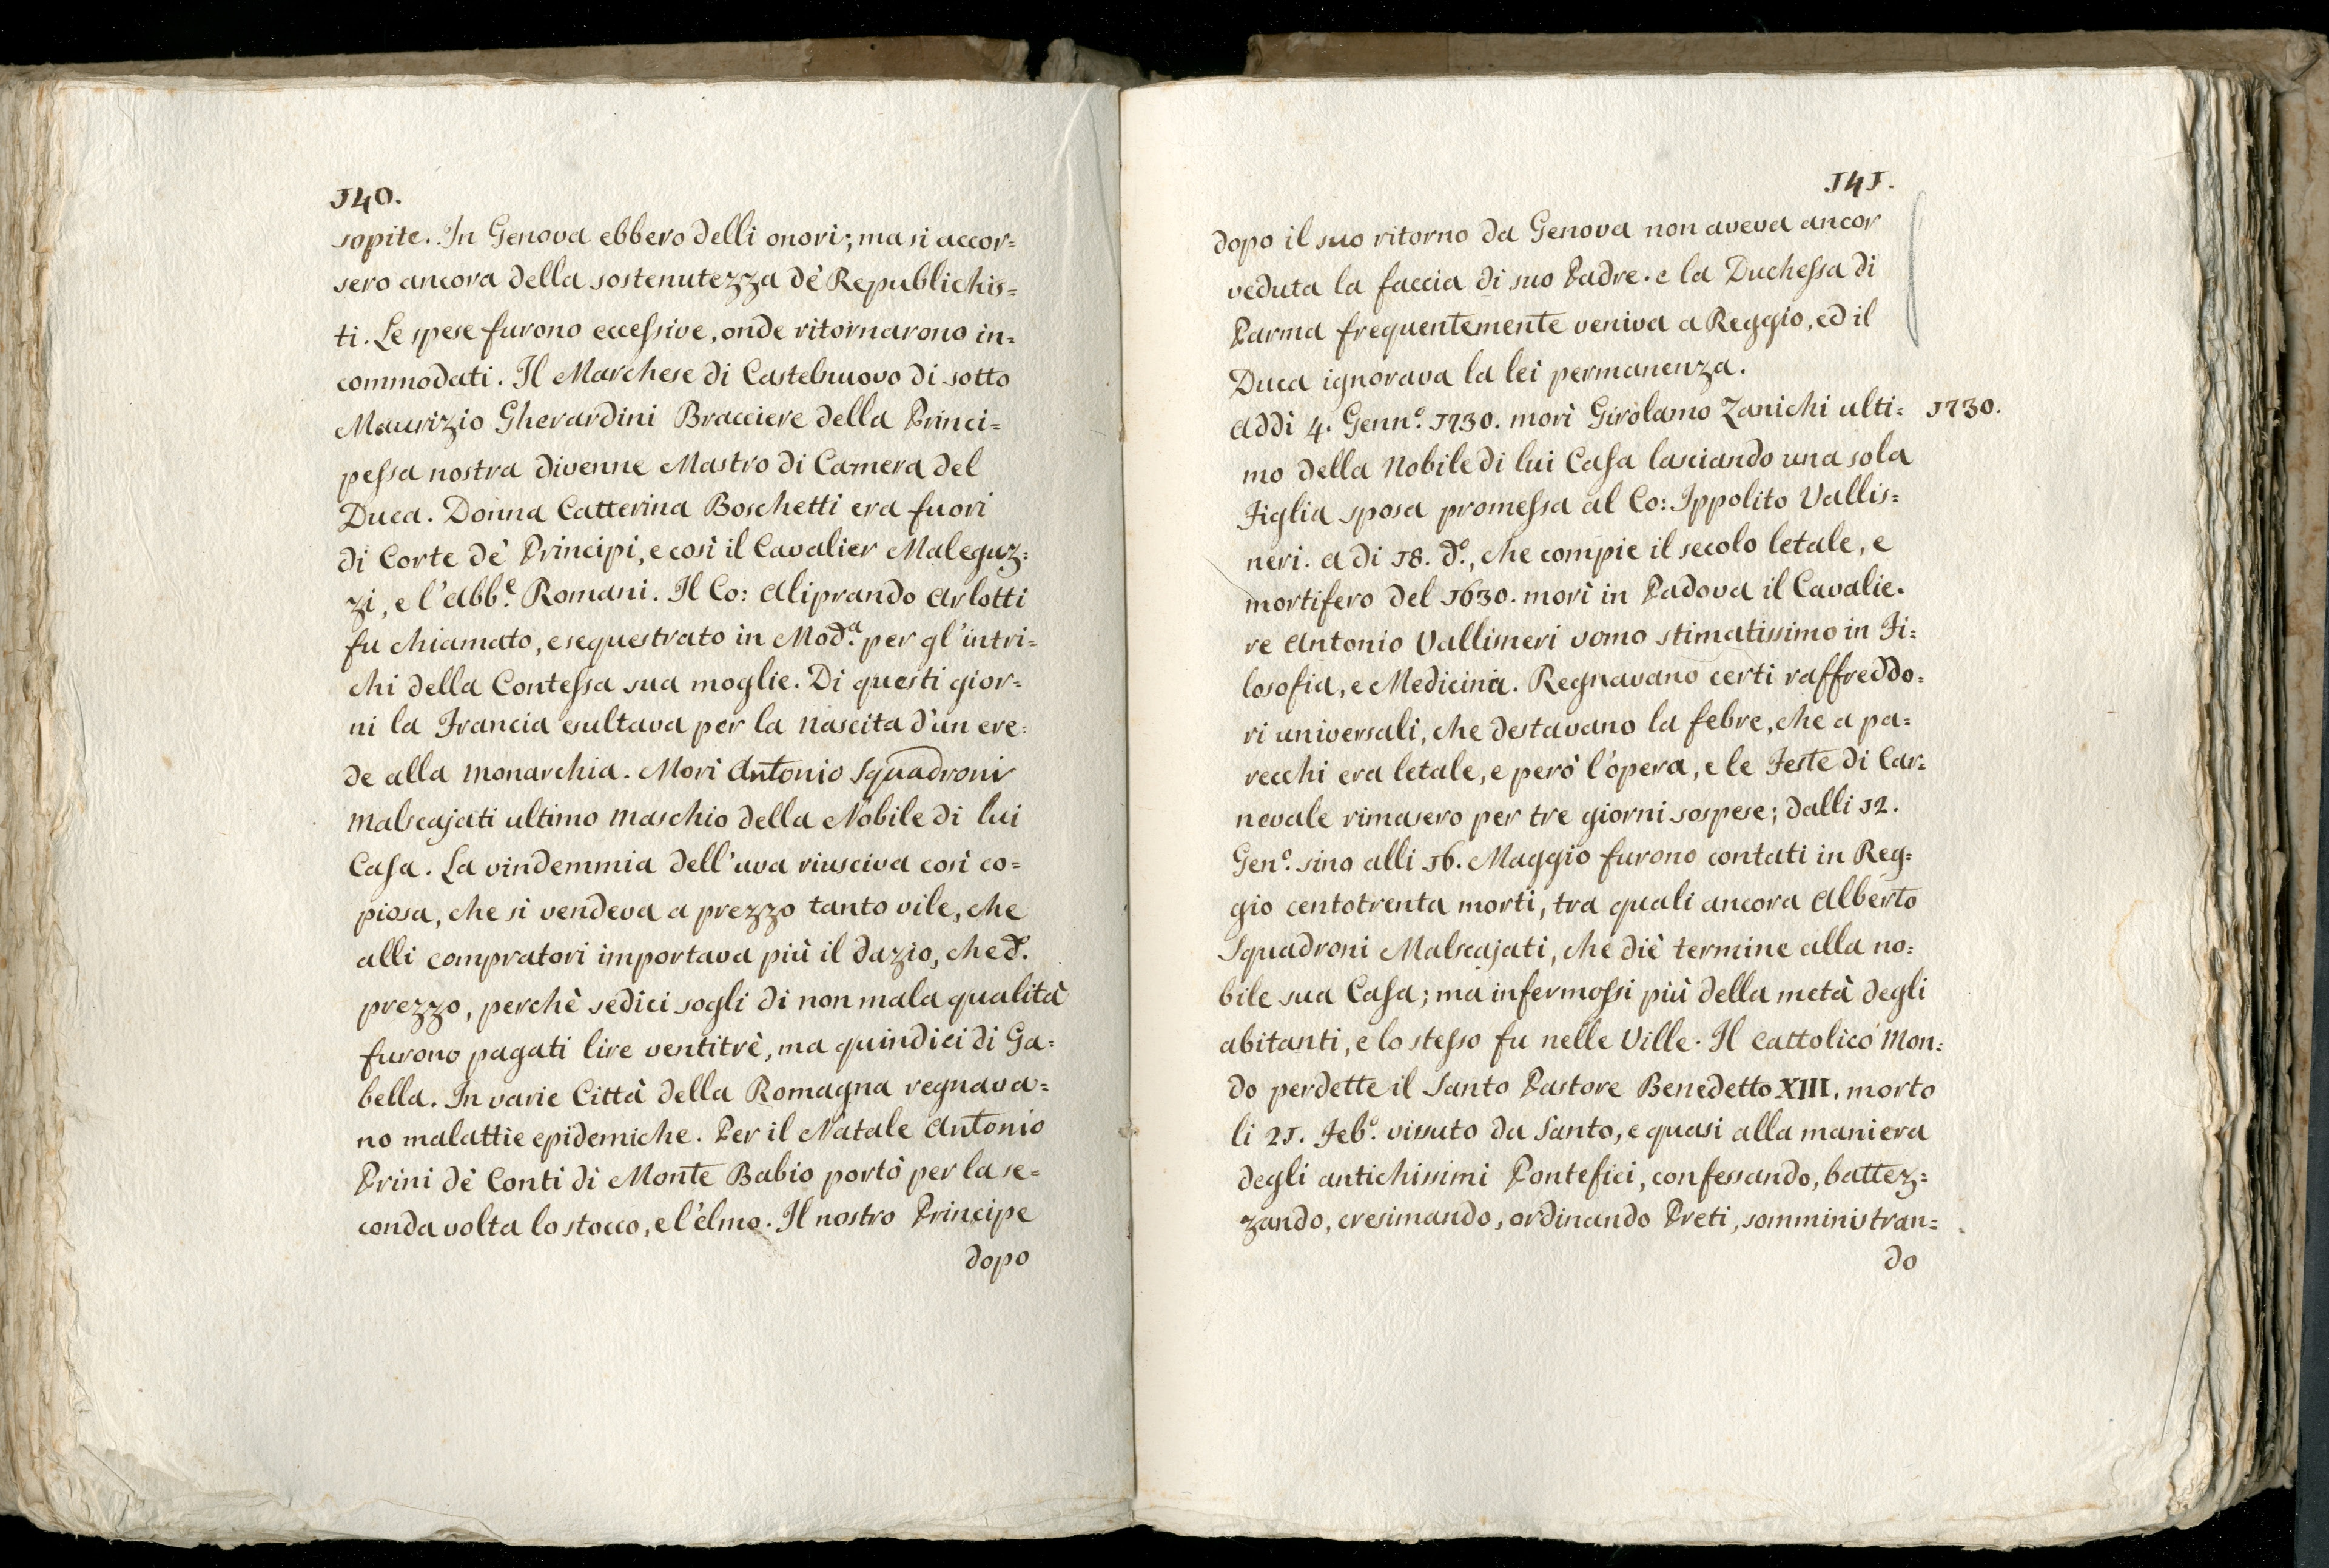 140.
sopite. In Genova ebbero delli onori; ma si accor=
sero ancora della sostenutezza de' Republichis=
ti. Le spese furono eccessive, onde ritornarono in=
commodati. Il Marchese di Castelnuovo di sotto
Maurizio Gherardini Bracciere della Princi=
pessa nostra divenne Mastro di Camera del
Duca. Donna Catterina Boschetti era fuori
di Corte de' Principi, e così il Cavalier Maleguz=
zi, e l'Abb.e Romani. Il Co: Aliprando Arlotti
fu chiamato, e sequestrato in Mod.a per gl'intri=
chi della Contessa sua moglie. Di questi gior=
ni la Francia esultava per la nascita d'un ere=
de alla monarchia. Morì Antonio Squadroni
Malscajati ultimo maschio della Nobile di lui
Casa. La vindemmia dell'uva riusciva così co=
piosa, che si vendeva a prezzo tanto vile, che
alli compratori importava più il dazio, che d.o
prezzo, perchè sedici sogli di non mala qualità
furono pagati lire ventitrè, ma quindici di Ga=
bella. In varie Città della Romagna regnava=
no malattie epidemiche. Per il Natale Antonio
Prini de' Conti di Monte Babio portò per la se=
conda volta lo stocco, e l'elmo. Il nostro Principe
dopo
141.
dopo il suo ritorno da Genova non aveva ancor
veduta la faccia di suo Padre. e la Duchessa di
Parma frequentemente veniva a Reggio, ed il
Duca ignorava la lei permanenza.
Addi 4. Genn.o 1730. morì Girolamo Zanichi ulti= 1730.
mo della Nobile di lui Casa lasciando una sola
Figlia sposa promessa al Co: Ippolito Vallis=
neri. A di 18. d.o, che compie il secolo letale, e
mortifero del 1630. morì in Padova il Cavalie=
re Antonio Vallisneri uomo stimatissimo in Fi=
losofia, e Medicina. Regnavano certi raffreddo=
ri universali, che destavano la febre, che a pa=
recchi era letale, e però l'opera, e le Feste di Car=
nevale rimasero per tre giorni sospese; dalli 12.
Gen.o sino alli 16. Maggio furono contati in Reg=
gio centotrenta morti, tra quali ancora Alberto
Squadroni Malscajati, che diè termine alla no=
bile sua Casa; ma infermossi più della metà degli
abitanti, e lo stesso fu nelle Ville. Il Cattolico Mon=
do perdette il Santo Pastore Benedetto XIII. morto
li 21. Feb.o vissuto da Santo, e quasi alla maniera
degli antichissimi Pontefici, confessando, battez=
zando, cresimando, ordinando Preti, somministran=
do